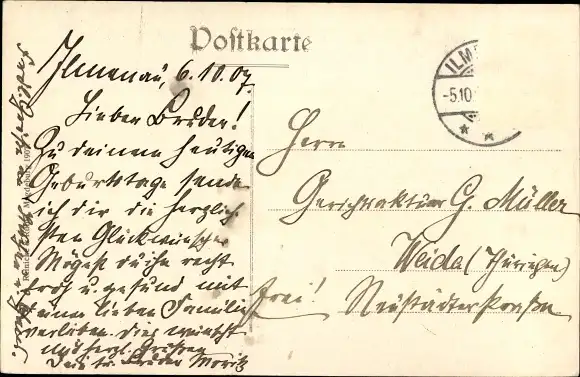 Postkarte
ILM
-5.10.
Ilmenau, 6.10.07.
Lieber Bruder!
Zu deinem heutigen
Geburtstage sende
ich dir die herzlich-
sten Glückwünsche
Mögest du ihn recht
froh u. gesund mit
deiner lieben Familie
verleben. Dies wünscht
mit herzl. Grüßen
Dein tr. Bruder Moritz
Herrn
Gerichtsaktuar G. Müller
Weida (Thüringen)
Frei! Neustädterstraße